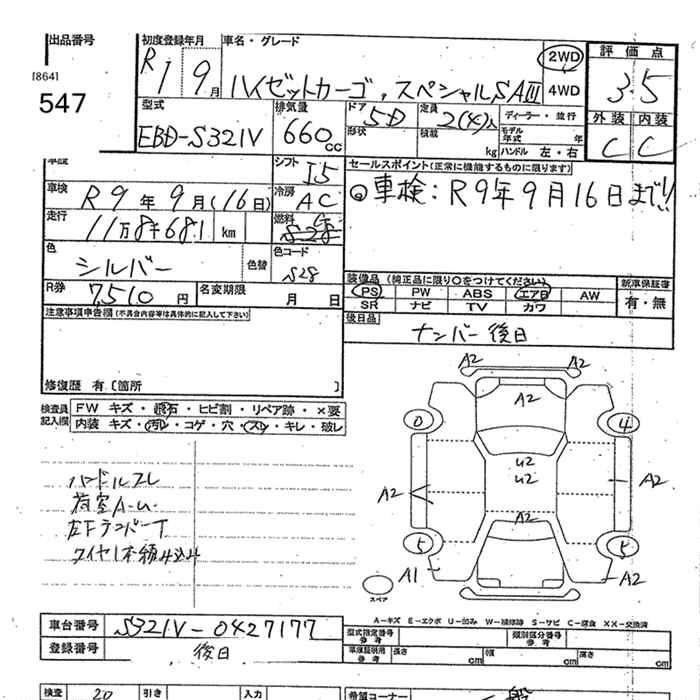 出品番号
[864]
547
初度登録年月 車名・グレード 2WD 評価点
R1 9月 ハイゼットカーゴ, スペシャルSAⅢ 4WD 3.5
型式 排気量 ドア 定員 ディーラー・並行 外装 内装
EBD-S321V 660cc 5D 2(4)人 C C
形状 積載 kg モデル年式 年
ハンドル 左・右
シフト I5
車検 R9年9月(16日) 冷房 AC
走行 11万8千681 km 燃料
色 シルバー 色替 色コード S28
R券 7,510円 名変期限 月 日
注意事項申告欄(不具合内容等は具体的に記入して下さい)
修復歴 有〔箇所 〕
セールスポイント(正常に機能するものに限ります)
◎車検:R9年9月16日まで!!
装備品(純正品に限り○をつけてください) 新車保証書
PS PW ABS エアB AW 有・無
SR ナビ TV カワ
後日品
ナンバー後日
検査員記入欄
FW キズ・飛石・ヒビ割・リペア跡・×要
内装 キズ・汚レ・コゲ・穴・スレ・キレ・破レ
ハンドルスレ
荷室A-U
タイヤ1本積み込み
A2 A2
A2
0 4
U2
U2
A2 A2
A2
5 5
A1 A2
スペア
A-キズ E-エクボ U-凹み W-補修跡 S-サビ C-腐食 XX-交換済
車台番号 S321V-0427177
登録番号 後日
型式指定番号 参考 類別区分番号 参考
車庫証明用 参考 長さ cm 幅 cm 高さ cm
検査 20 引き 入力 希望コーナー 一般